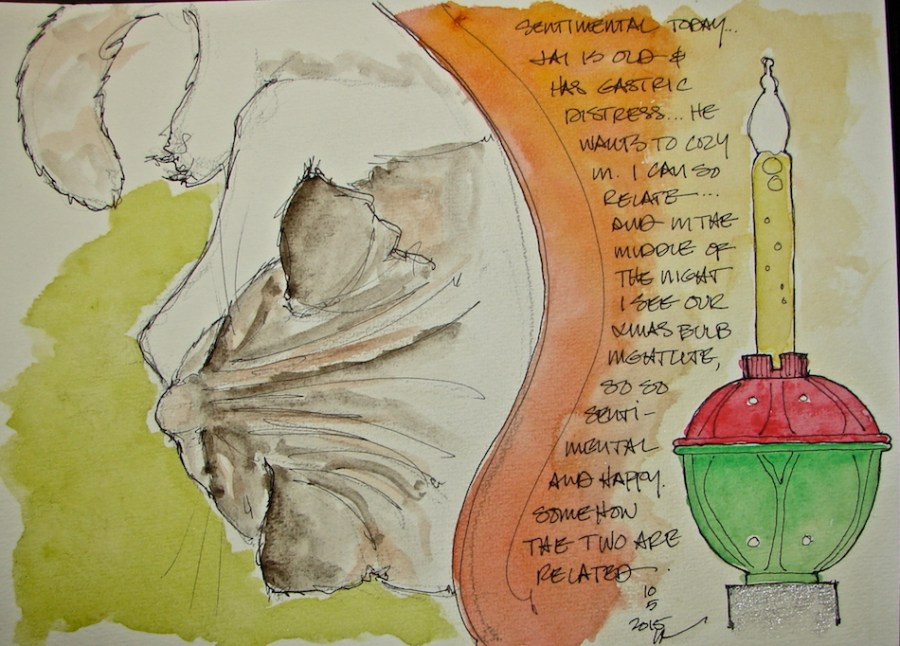 SENTIMENTAL TODAY...
JAI IS OLD &
HAS GASTRIC
DISTRESS... HE
WANTS TO COZY
IN. I CAN SO
RELATE....
AND IN THE
MIDDLE OF
THE NIGHT
I SEE OUR
XMAS BULB
NIGHTLITE,
SO SO
SENTI-
MENTAL
AND HAPPY.
SOMEHOW
THE TWO ARE
RELATED.
10
5
2015